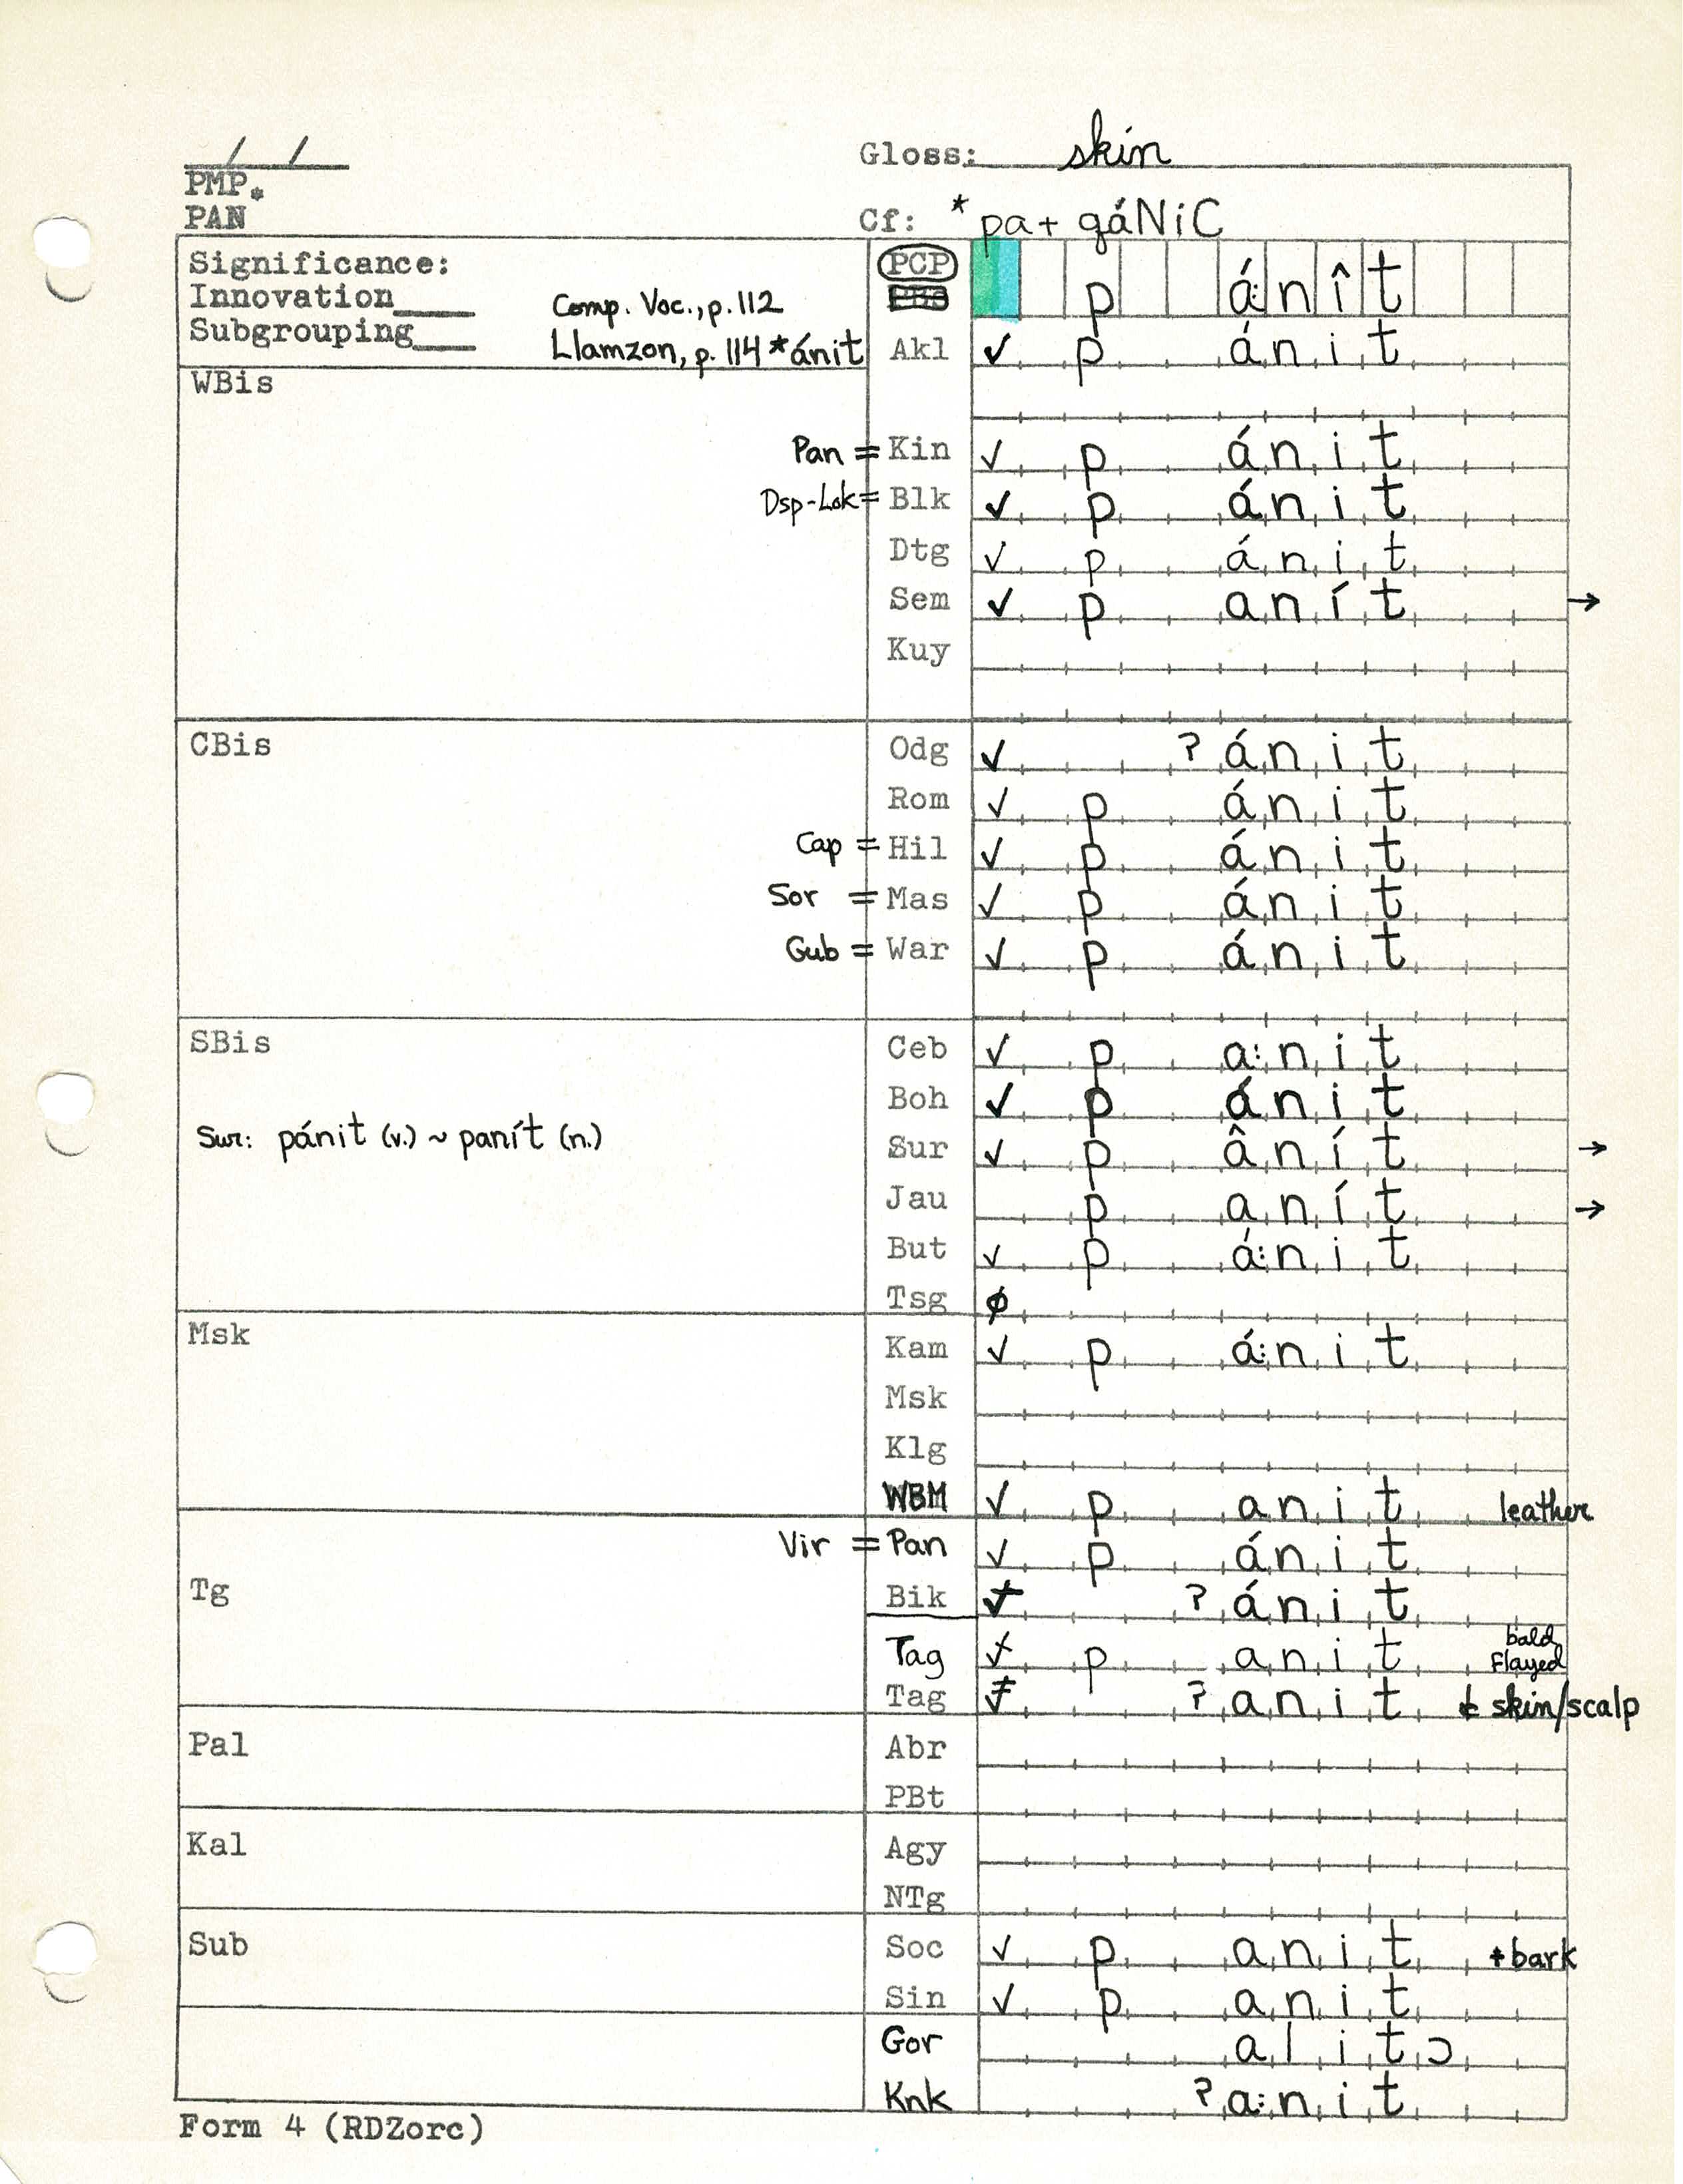 Gloss: skin
PMP *
PAN
Cf: * pa+ qáNiC
Significance:
Innovation
Subgrouping
Comp. Voc., p. 112
Llamzon, p. 114 *ánit
PCP p á:nît
Akl ✓ p ánit
WBis
Pan = Kin ✓ p ánit
Dsp-Lok = Blk ✓ p ánit
Dtg ✓ p ánit
Sem ✓ p anít →
Kuy
CBis
Odg ✓ ʔánit
Rom ✓ p ánit
Cap = Hil ✓ p ánit
Sor = Mas ✓ p ánit
Gub = War ✓ p ánit
SBis
Ceb ✓ p a:nit
Boh ✓ p ánit
Sur: pánit (v.) ~ panít (n.)
Sur ✓ p ânít →
Jau p anít →
But ✓ p á:nit
Tsg ø
Msk
Kam ✓ p á:nit
Msk
Klg
WBM ✓ p anit leather
Vir = Pan ✓ p ánit
Tg
Bik ✓ ʔánit
Tag ✓ p anit bald flayed
Tag ✓ ʔanit skin/scalp
Pal
Abr
PBt
Kal
Agy
NTg
Sub
Soc ✓ p anit +bark
Sin ✓ p anit
Gor alitɔ
Knk ʔa:nit
Form 4 (RDZorc)